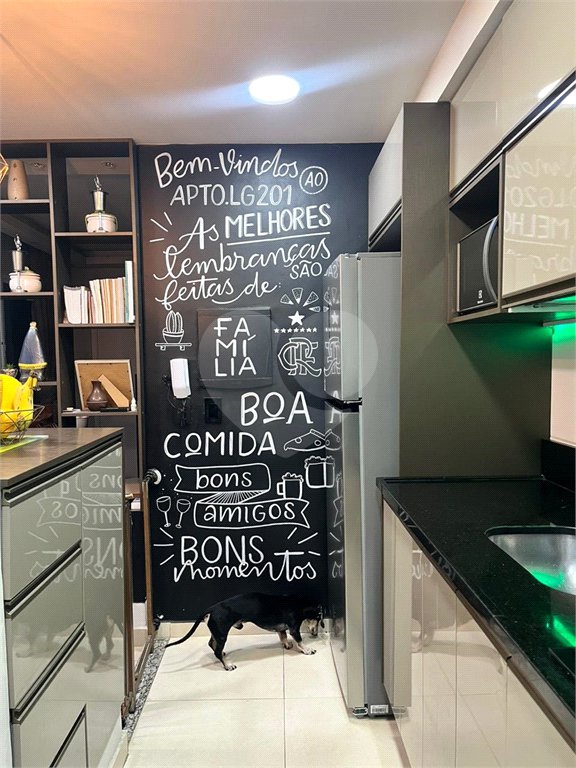 Bem-Vindos AO
APTO.LG201
As MELHORES
lembranças SÃO
feitas de:
FA
MÍ
LIA
CRF
BOA
COMIDA
bons
amigos
BONS
momentos